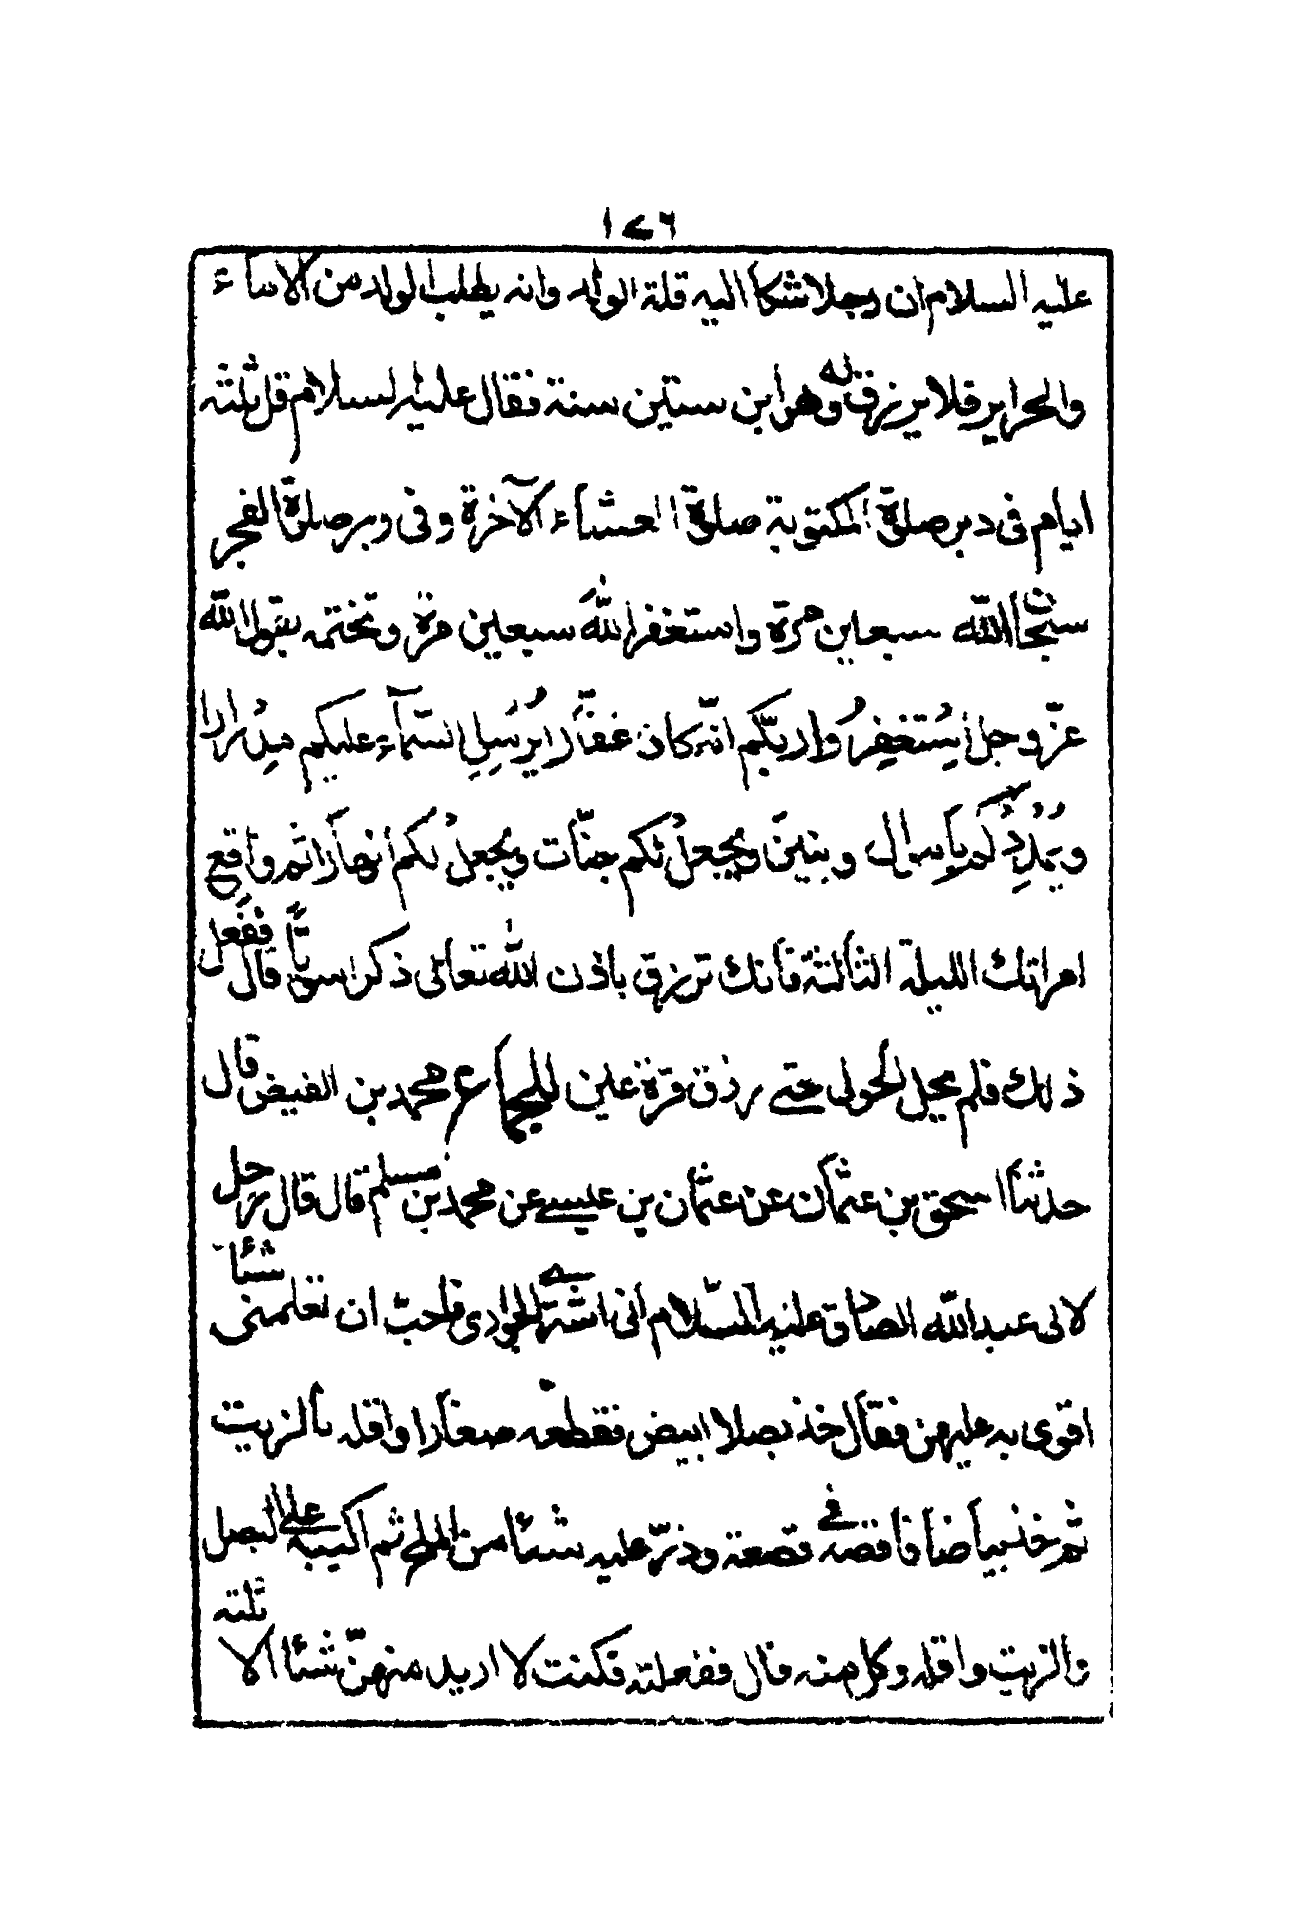 ١٧٦
عليه السلام ان رجلا شكا اليه قلة الولد وانه يطلب الولد من الاماء
والحراير فلا يرزق له وهو ابن ستين سنة فقال عليه لسلام قل ثلثة
ايام فى دبر صلوة المكتوبة صلوة العشاء الآخرة وفى دبر صلوة الفجر
سبحان الله سبعين مرة واستغفر الله سبعين مرة وتختمه بقول الله
عزّ وجل اِسْتَغْفِرُوا رَبَّكُم انّه كان غفّارًا يُرْسِلِ السّمآء عليكم مِدْرارا
ويُمْدِدْكُم باَموال وبنينَ ويجعلْ لكم جنّات ويجعلْ لكم انهارًا ثم واقع
امراتك الليلة الثالثة فانك ترزق باذن الله تعالى ذكرا سويًّا قال ففعل
ذلك فلم يحل الحول حتى رزق قرة عين للجماع محمد بن الفيض قال
حدثنا اسحق بن عثمان عن عثمان بن عيسى عن محمد بن مسلم قال قال رجل
لابى عبد الله الصادق عليه السّلام انى اشترى الجوارى فاحبّ ان تعلمنى شيئا
اقوى به عليهن فقال خذ بصلا ابيض فقطعه صغارا واقله بالزيت
ثم خذ بياضا فافقصه فى قصعة وذرّ عليه شيئا من الملح ثم اكببه على البصل
والزيت واقله وكل منه قال ففعلته فكنت لا اريد منهنّ شيئا الا نلته